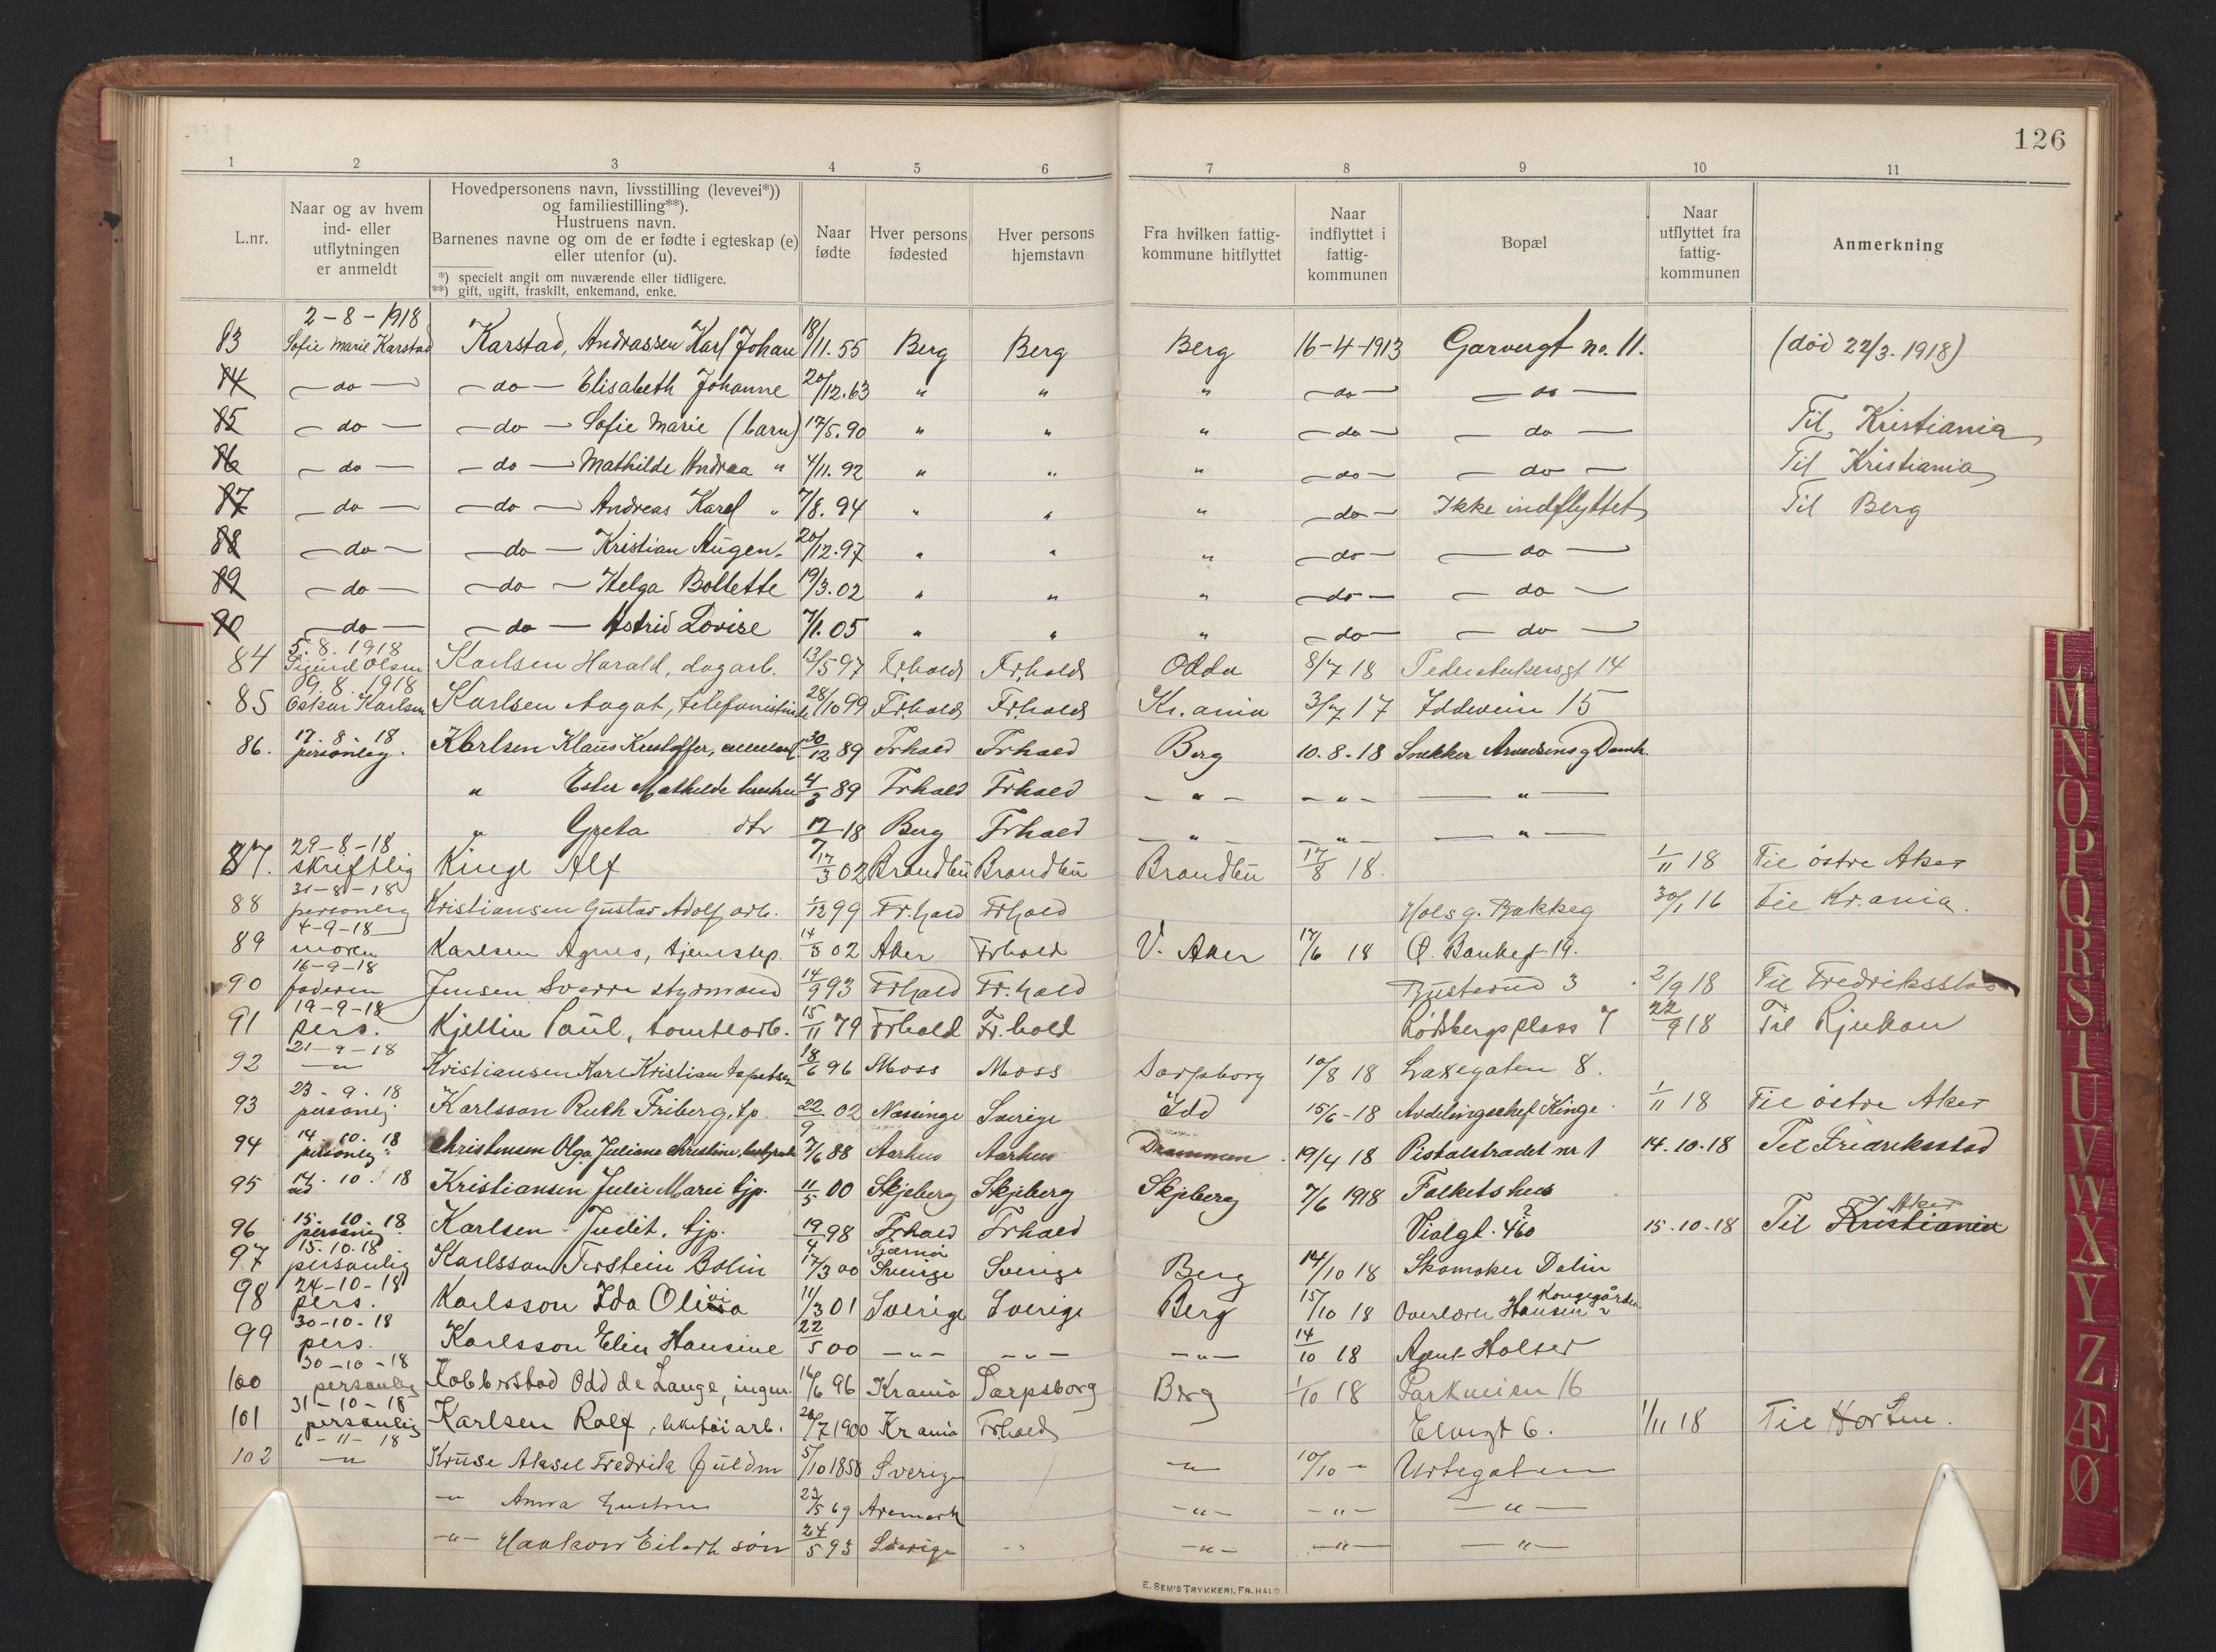 126
1 2 3 4 5 6 7 8 9 10 11
L.nr.
Naar og av hvem ind- eller utflytningen er anmeldt
Hovedpersonens navn, livsstilling (levevei*)) og familiestilling**).
Hustruens navn.
Barnenes navne og om de er fødte i egteskap (e) eller utenfor (u).
*) specielt angit om nuværende eller tidligere.
**) gift, ugift, fraskilt, enkemand, enke.
Naar fødte
Hver persons fødested
Hver persons hjemstavn
Fra hvilken fattig-kommune hitflyttet
Naar indflyttet i fattig-kommunen
Bopæl
Naar utflyttet fra fattig-kommunen
Anmerkning
2-8-1918
83 Sofie Marie Karstad Karstad, Andrassen Karl Johan 18/11.55 Berg Berg Berg 16-4-1913 Garvergt no. 11. (död 22/3.1918)
84 -do- -do- Elisabeth Johanne 20/12.63 " " " -do- -do-
85 -do- -do- Sofie Marie (barn) 17/5.90 " " " -do- -do- Til Kristiania
86 -do- -do- Mathilde Andrea " 4/11.92 " " " -do- -do- Til Kristiania
87 -do- -do- Andreas Karl " 7/8.94 " " " -do- Ikke indflyttet Til Berg
88 -do- -do- Kristian Augen. 20/12.97 " " " -do- -do-
89 -do- -do- Helga Bollette 19/3.02 " " " -do- -do-
90 -do- -do- Astrid Lovise 7/1.05 " " " -do- -do-
5.8.1918
84 Sigurd Olsen Karlsen Harald, dagarb. 13/5 97 Fr.hald Fr.hald Odda 8/7 18 Peder Ankersgt 14
9.8.1918
85 Oskar Karlsen Karlsen Aagot, telefonistinde 28/10 99 Fr.hald Fr.hald Kr.ania 3/7 17 Iddeveien 15
17.8.18
86. personlig. Karlsen Klaus Kristoffer, 30/12 89 Frhald Frhald Berg 10.8.18 Snekker
" Ester Mathilde hustru 4/3 89 Frhald Frhald -"- -"- -"-
" Greta dtr 17/7 18 Berg Frhald -"- -"- -"-
29-8-18
87. skriftlig Kinge Alf 17/3 02 Brandbu Brandbu Brandbu 17/8 18. 1/11 18 Til östre Aker
31-8-18
88 personlig Kristiansen Gustav Adolf arb. 1/12 99 Fr.hald Frhald Hols g. Bakkeg 30/1 16 til Kr.ania.
4-9-18
89 moren Karlsen Agnes, tjenestep. 14/3 02 Aker Frhald V. Aker 17/6 18 O. Bankgt 19.
16-9-18
90 faderen Jensen Sverre styrmand 14/9 93 Frhald Fr.hald Busterud 3 2/9 18 Til Fredriksstad
19-9-18
91 pers. Kjellin Paul, tomtearb. 15/11 79 Frhald Fr.hald Rödsbergs plass 7 22/9 18 Til Rjukan
21-9-18
92 -"- Kristiansen Karl Kristian tapetser 18/6 96 Moss Moss Sarpsborg 10/8 18 Laxegaten 8.
23.9.18
93 personlig Karlsson Ruth Friberg, tp. 22/9 02 Nössinge Sverige Idd 15/6-18 Avdelingschef Kinge 1/11 18 Til östre Aker
14.10.18
94 personlig Christensen Olga Juliane Christine, 7/6 88 Aarhus Aarhus Drammen 19/4 18 Pistolstrædet nr 1 14.10.18 Til Fredriksstad
14.10.18
95 Kristiansen Julie Marie tjp. 11/5 00 Skjeberg Skjeberg Skjeberg 7/6 1918 Folkets hus
15.10.18
96 personlig Karlsen Judit. tjp. 19/4 98 Frhald Frhald Violgt. 460 ? 15.10.18 Til Kristiania Aker
15.10.18
97 personlig Karlsson Torstein Bolin 17/3 00 Tjærnö Sverige Sverige Berg 14/10 18 Skomaker Dalin
24-10-18
98 pers. Karlsson Ida Olivia 11/3 01 Sverige Sverige Berg 15/10 18 Overlærer Hansen Kongegården
30-10-18
99 pers. Karlsson Elin Hansine 22/5 00 -"- -"- -"- 14/10 18 Agent Holter
30-10-18
100 personlig Kobberstad Odd de Lange, ingen. 16/6 96 Krania Sarpsborg Berg 1/10 18 Parkveien 16
31-10-18
101 personlig Karlsen Rolf, 20/7 1900 Krania Fr.hald Elvegt 6. 1/11 18 Til Horten.
6-11-18
102 -"- Kruse Aksel Fredrik 5/10 1858 Sverige -"- 10/10 - Urtegaten
-"- Anna hustru 23/5 69 Aremark -"- -"- -"-
-"- Haakon Eilert sön 24/5 93 Sverige -"- -"- -"-
E. SEM'S TRYKKERI, FR.HALD
L M N O P Q R S T U V W X Y Z Æ Ø